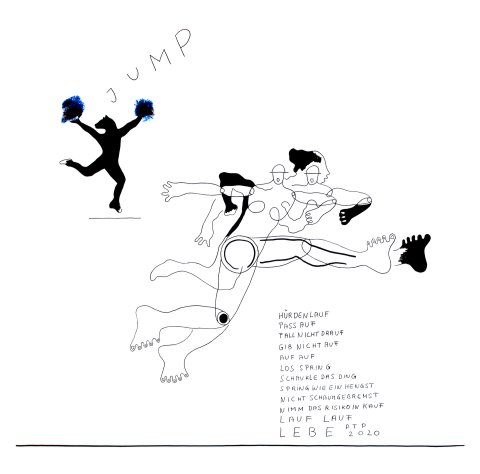 JUMP
HÜRDENLAUF
PASS AUF
FALL NICHT DRAUF
GIB NICHT AUF
AUF AUF
LOS SPRING
SCHAUKLE DAS DING
SPRING WIE EIN HENGST
NICHT SCHAUMGEBREMST
NIMM DAS RISIKO IN KAUF
LAUF LAUF
LEBE PTP 2020